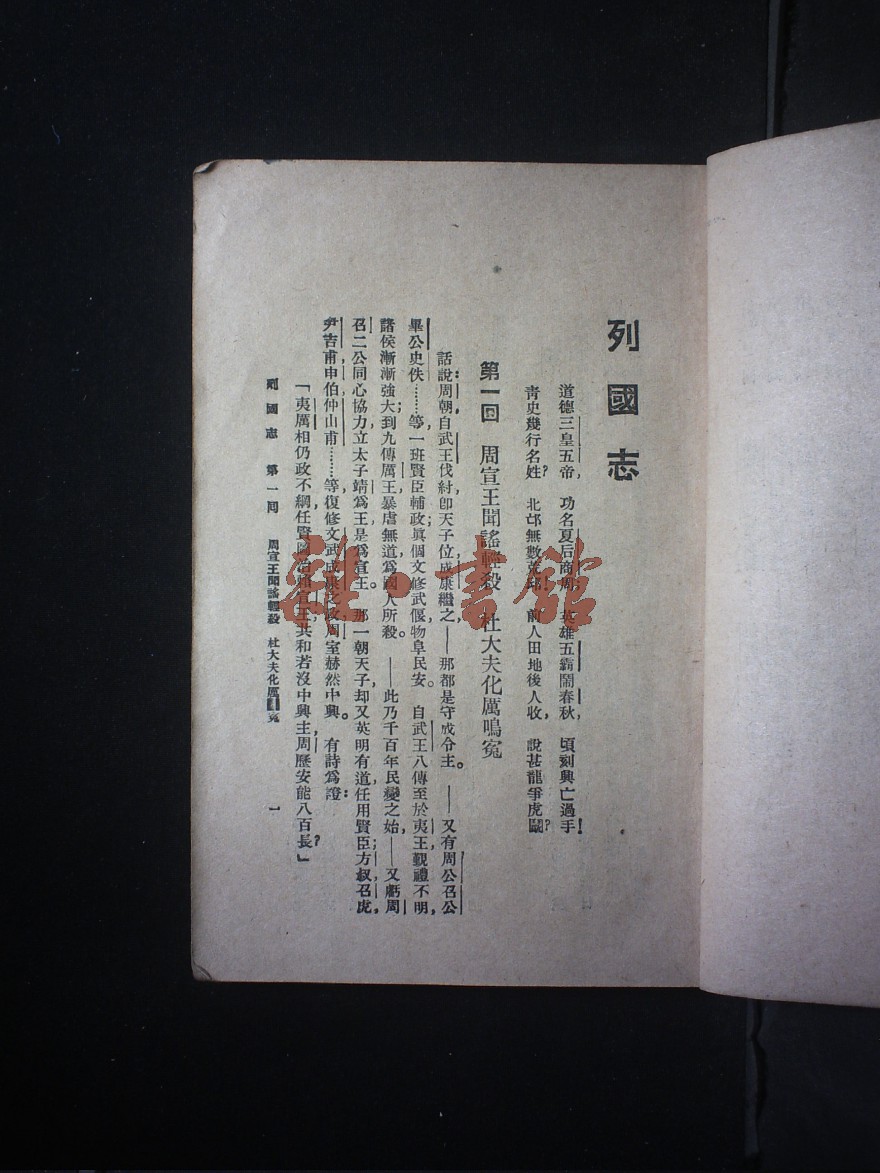 列國志
道德三皇五帝，功名夏后商周，英雄五霸鬧春秋，頃刻興亡過手！
青史幾行名姓？北邙無數荒邱，前人田地後人收，說甚龍爭虎鬭？
第一回 周宣王聞謠輕殺 杜大夫化厲鳴冤
話說：周朝，自武王伐紂，卽天子位，成康繼之——那都是守成令主。——又有周公召公
畢公史佚……等，一班賢臣輔政；眞個文修武偃，物阜民安。自武王八傳至於夷王，覲禮不明，
諸侯漸漸強大；到九傳厲王，暴虐無道，爲國人所殺。——此乃千百年民變之始，——又虧周
召二公同心協力，立太子靖爲王，是爲宣王。那一朝天子，却又英明有道，任用賢臣；方叔，召虎，
尹吉甫，申伯，仲山甫……等，復修文武成康之政，周室赫然中興。有詩爲證：
「夷厲相仍政不綱，任賢圖治賴宣王，共和若沒中興主，周歷安能八百長？」
列國志 第一回 周宣王聞謠輕殺 杜大夫化厲鳴冤 一
雜·書館